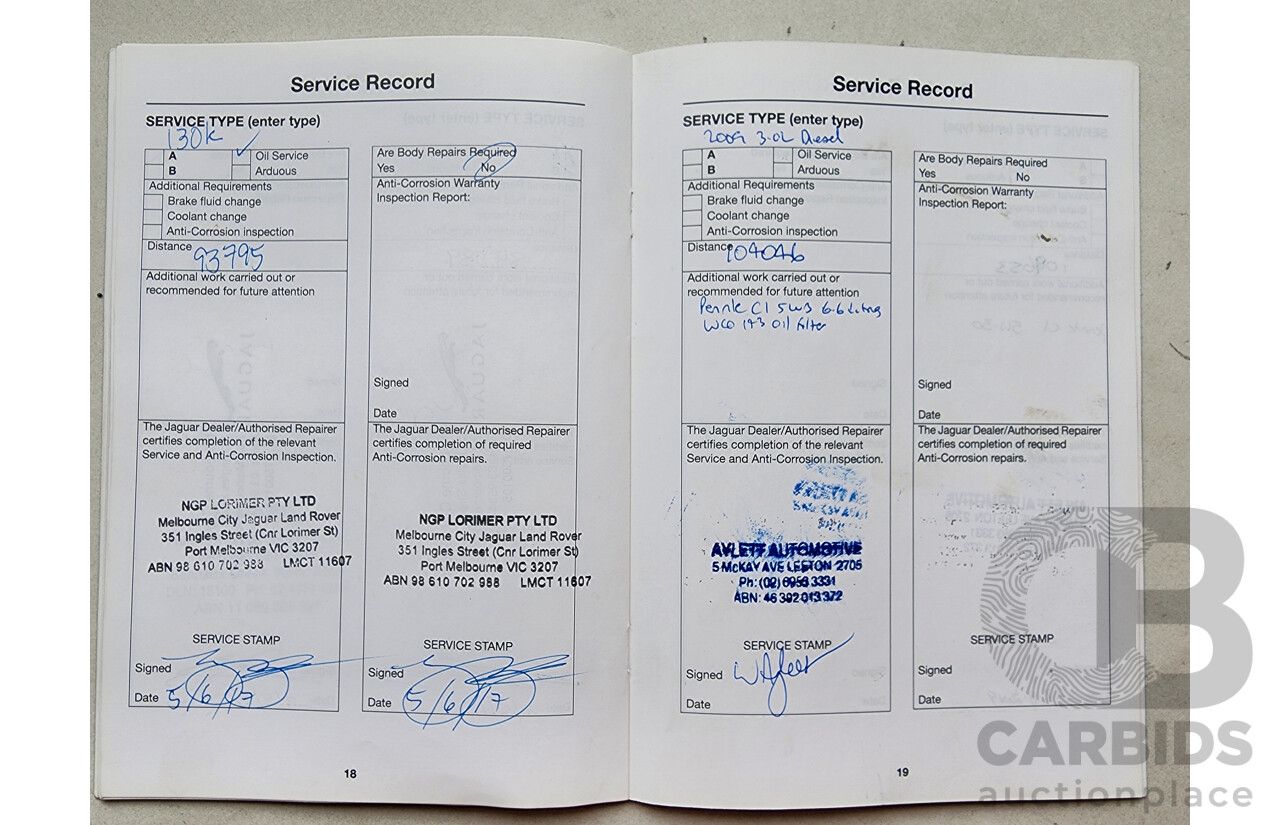 Service Record
SERVICE TYPE (enter type)
130K
A
Oil Service
B
Arduous
Additional Requirements
Brake fluid change
Coolant change
Anti-Corrosion inspection
Distance
93795
Additional work carried out or
recommended for future attention
The Jaguar Dealer/Authorised Repairer
certifies completion of the relevant
Service and Anti-Corrosion Inspection.
NGP LORIMER PTY LTD
Melbourne City Jaguar Land Rover
351 Ingles Street (Cnr Lorimer St)
Port Melbourne VIC 3207
ABN 98 610 702 988 LMCT 11607
SERVICE STAMP
Signed
Date 5/6/17
Are Body Repairs Required
Yes No
Anti-Corrosion Warranty
Inspection Report:
Signed
Date
The Jaguar Dealer/Authorised Repairer
certifies completion of required
Anti-Corrosion repairs.
NGP LORIMER PTY LTD
Melbourne City Jaguar Land Rover
351 Ingles Street (Cnr Lorimer St)
Port Melbourne VIC 3207
ABN 98 610 702 988 LMCT 11607
SERVICE STAMP
Signed
Date 5/6/17
18
Service Record
SERVICE TYPE (enter type)
2009 3.0L Diesel
A
Oil Service
B
Arduous
Additional Requirements
Brake fluid change
Coolant change
Anti-Corrosion inspection
Distance
104046
Additional work carried out or
recommended for future attention
C1 5W3 6.6
WCO 143 oil filter
The Jaguar Dealer/Authorised Repairer
certifies completion of the relevant
Service and Anti-Corrosion Inspection.
AYLETT AUTOMOTIVE
5 McKAY AVE LEETON 2705
Ph: (02) 6953 3331
ABN: 46 392 013 372
SERVICE STAMP
Signed
Date
Are Body Repairs Required
Yes No
Anti-Corrosion Warranty
Inspection Report:
Signed
Date
The Jaguar Dealer/Authorised Repairer
certifies completion of required
Anti-Corrosion repairs.
SERVICE STAMP
Signed
Date
19
CARBIDS
auctionplace